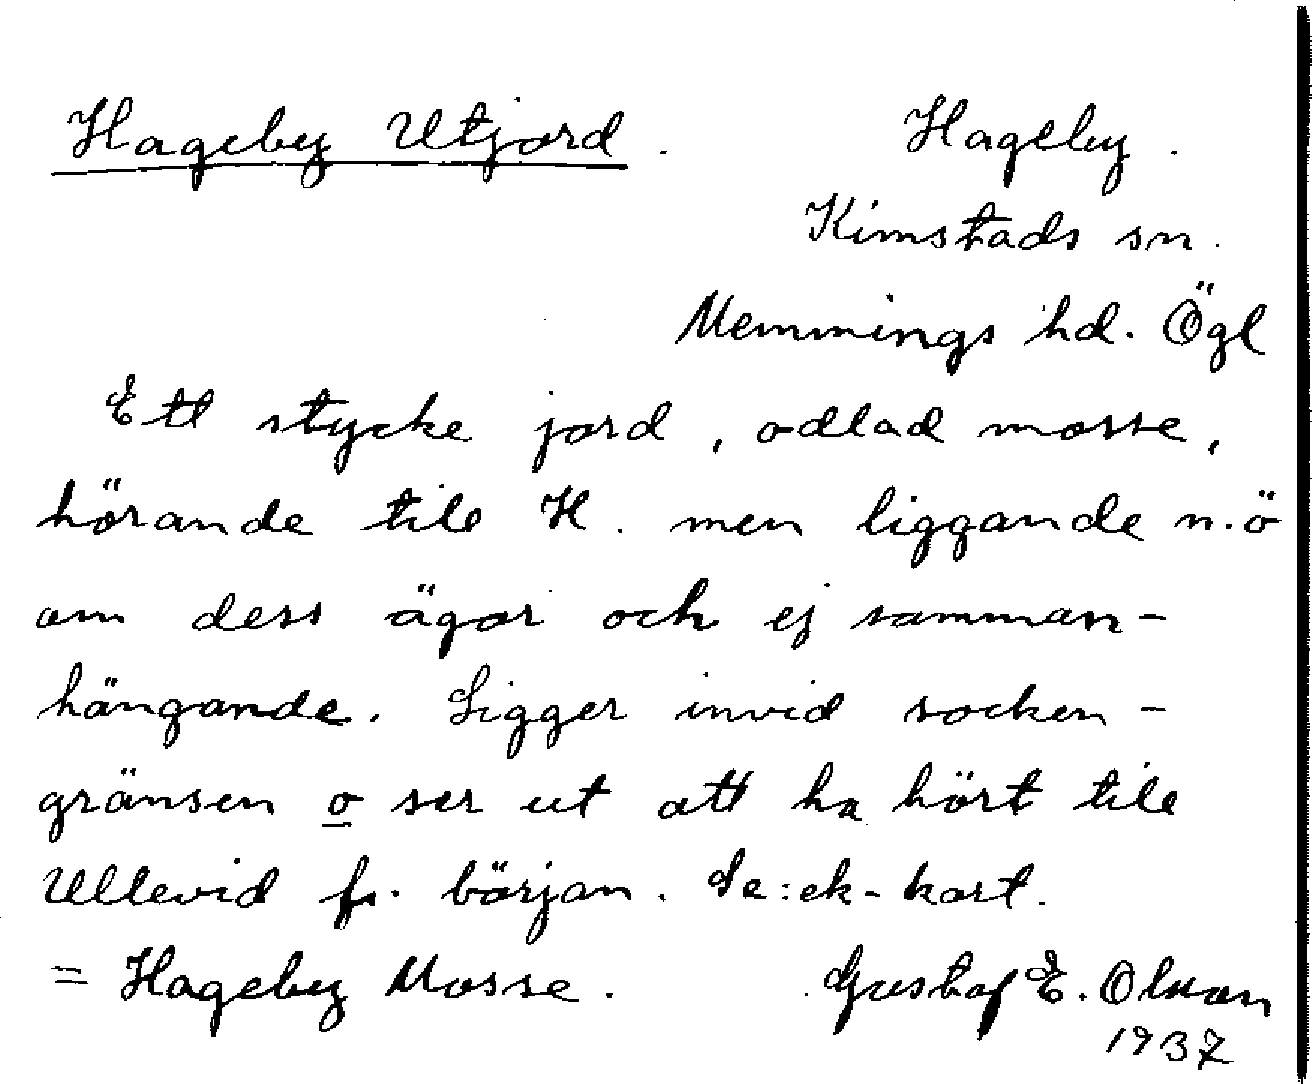 Hageby Utjord. Hageby.
Kimstads sn.
Memmings hd. Ögl
Ett stycke jord, odlad mosse,
hörande till H. men liggande n.ö
om dess ägor och ej samman-
hängande. Ligger invid socken-
gränsen o ser ut att ha hört till
Ullevid fr. början. Se: ek-kart.
= Hageby Mosse. Gustaf E. Olsson
1937